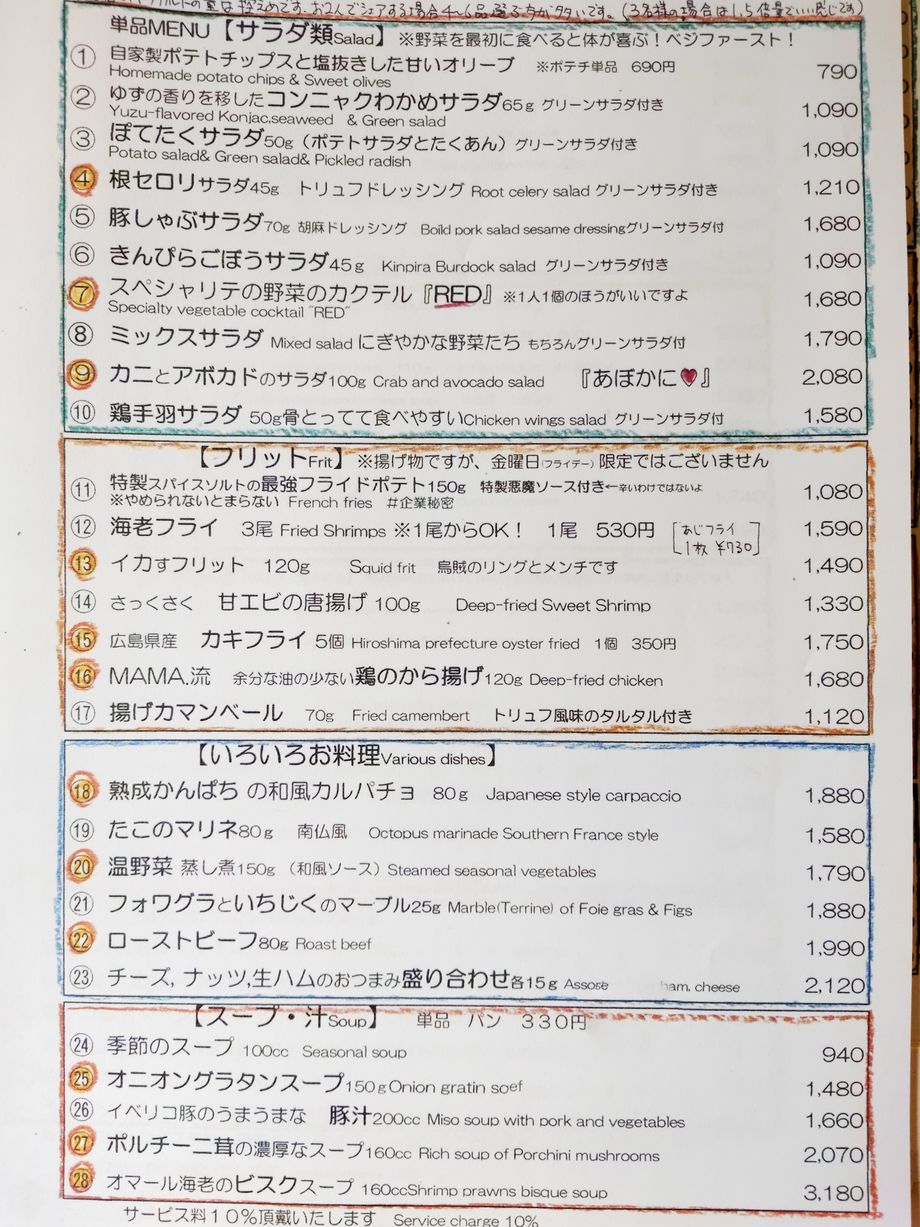 の量は控えめです。お2人でシェアする場合4〜6品選ぶ方が多いです。(3名様の場合は1.5倍量でいい感じです)
単品MENU【サラダ類Salad】※野菜を最初に食べると体が喜ぶ！ベジファースト！
① 自家製ポテトチップスと塩抜きした甘いオリーブ ※ポテチ単品 690円 790
Homemade potato chips & Sweet olives
② ゆずの香りを移したコンニャクわかめサラダ65g グリーンサラダ付き 1,090
Yuzu-flavored Konjac,seaweed & Green salad
③ ぽてたくサラダ50g（ポテトサラダとたくあん）グリーンサラダ付き 1,090
Potato salad& Green salad& Pickled radish
④ 根セロリサラダ45g トリュフドレッシング Root celery salad グリーンサラダ付き 1,210
⑤ 豚しゃぶサラダ70g 胡麻ドレッシング Boild pork salad sesame dressingグリーンサラダ付 1,680
⑥ きんぴらごぼうサラダ45g Kinpira Burdock salad グリーンサラダ付き 1,090
⑦ スペシャリテの野菜のカクテル『RED』※1人1個のほうがいいですよ 1,680
Specialty vegetable cocktail "RED"
⑧ ミックスサラダ Mixed salad にぎやかな野菜たち もちろんグリーンサラダ付 1,790
⑨ カニとアボカドのサラダ100g Crab and avocado salad 『あぼかに♥』 2,080
⑩ 鶏手羽サラダ 50g骨とってて食べやすいChicken wings salad グリーンサラダ付 1,580
【フリットFrit】※揚げ物ですが、金曜日(フライデー)限定ではございません
⑪ 特製スパイスソルトの最強フライドポテト150g 特製悪魔ソース付き←辛いわけではないよ 1,080
※やめられないとまらない French fries #企業秘密
⑫ 海老フライ 3尾 Fried Shrimps ※1尾からOK！ 1尾 530円 [あじフライ 1,590
1枚 ¥730]
⑬ イカすフリット 120g Squid frit 烏賊のリングとメンチです 1,490
⑭ さっくさく 甘エビの唐揚げ 100g Deep-fried Sweet Shrimp 1,330
⑮ 広島県産 カキフライ 5個 Hiroshima prefecture oyster fried 1個 350円 1,750
⑯ MAMA.流 余分な油の少ない鶏のから揚げ120g Deep-fried chicken 1,680
⑰ 揚げカマンベール 70g Fried camembert トリュフ風味のタルタル付き 1,120
【いろいろお料理Various dishes】
⑱ 熟成かんぱち の和風カルパチョ 80g Japanese style carpaccio 1,880
⑲ たこのマリネ80g 南仏風 Octopus marinade Southern France style 1,580
⑳ 温野菜 蒸し煮150g （和風ソース）Steamed seasonal vegetables 1,790
㉑ フォワグラといちじくのマーブル25g Marble(Terrine) of Foie gras & Figs 1,880
㉒ ローストビーフ80g Roast beef 1,990
㉓ チーズ, ナッツ,生ハムのおつまみ盛り合わせ各15g ham, cheese 2,120
【スープ・汁Soup】 単品 パン 330円
㉔ 季節のスープ 100cc Seasonal soup 940
㉕ オニオングラタンスープ150g Onion gratin soef 1,480
㉖ イベリコ豚のうまうまな 豚汁200cc Miso soup with pork and vegetables 1,660
㉗ ポルチーニ茸の濃厚なスープ160cc Rich soup of Porchini mushrooms 2,070
㉘ オマール海老のビスクスープ 160ccShrimp prawns bisque soup 3,180
サービス料10%頂戴いたします Service charge 10%